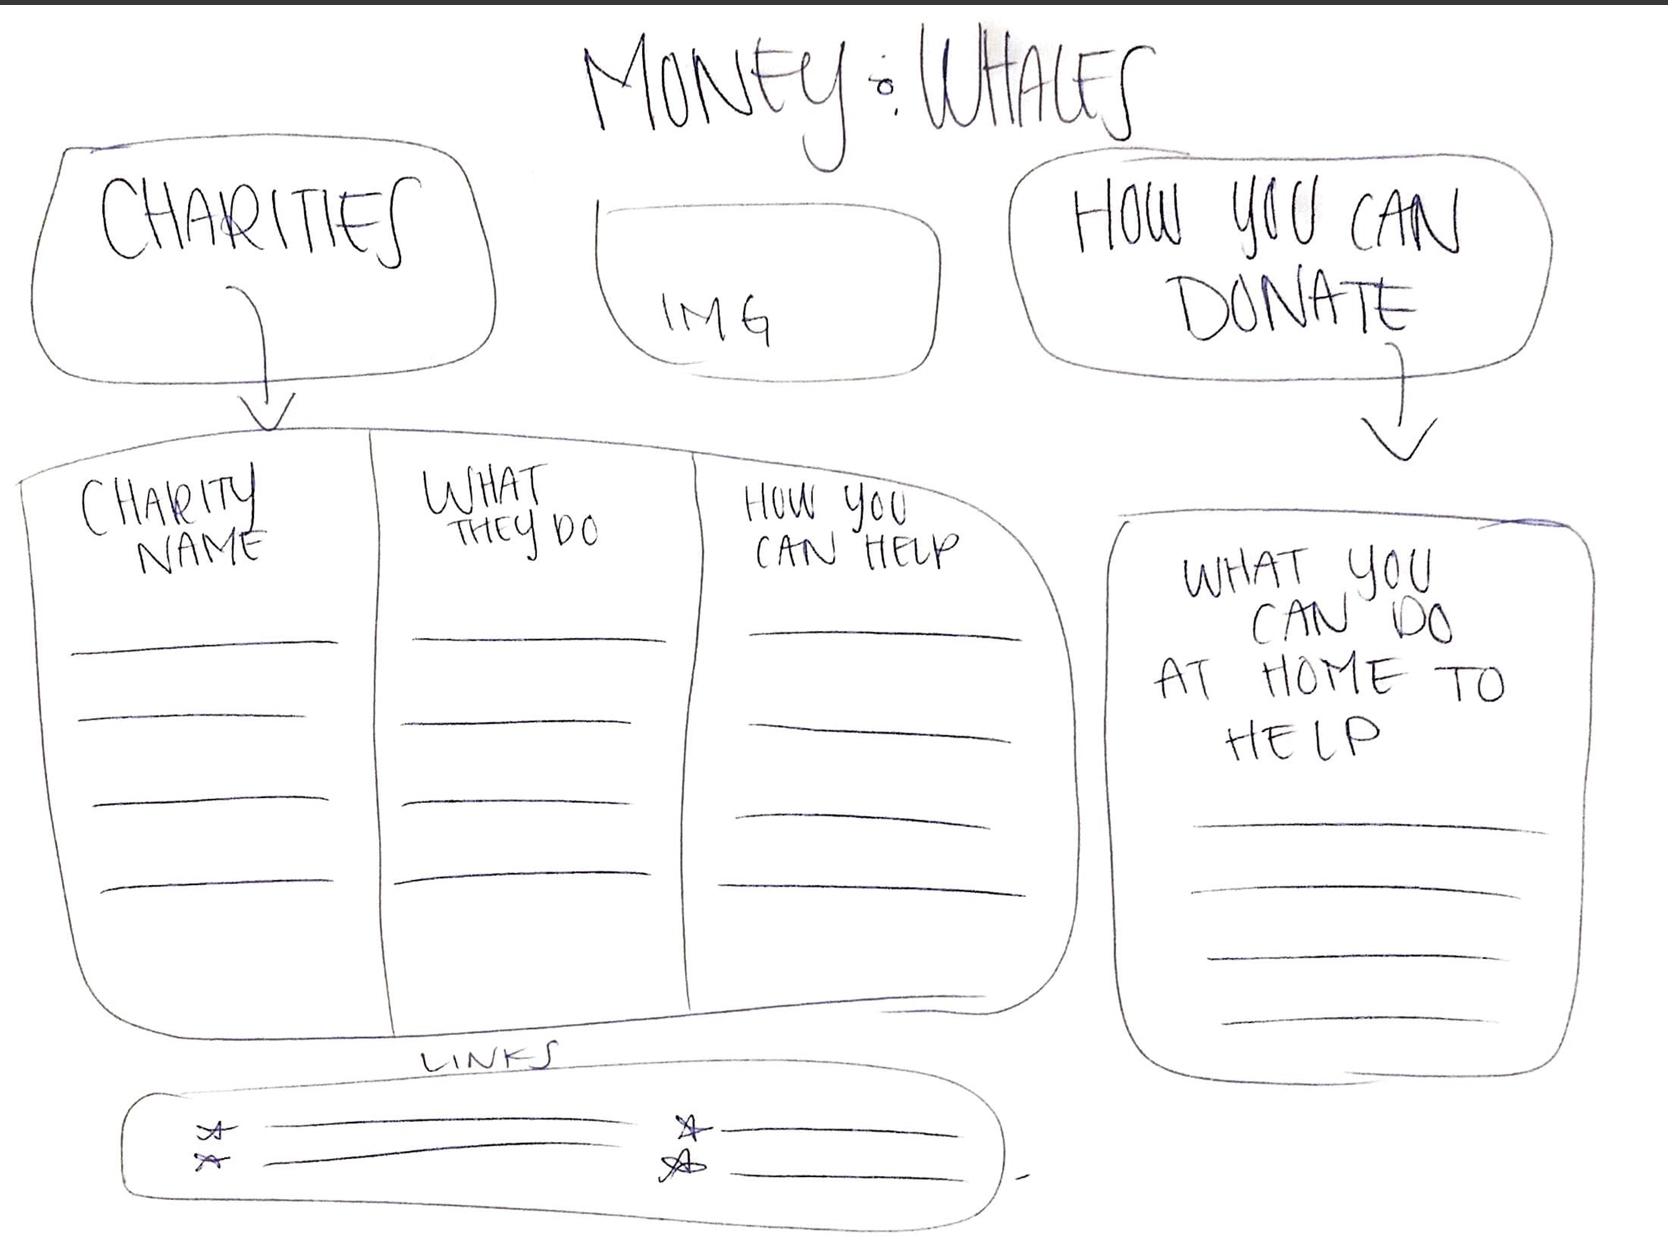 MONEY & WHALES
CHARITIES
IMG
HOW YOU CAN
DONATE
CHARITY
NAME
WHAT
THEY DO
HOW YOU
CAN HELP
WHAT YOU
CAN DO
AT HOME TO
HELP
LINKS